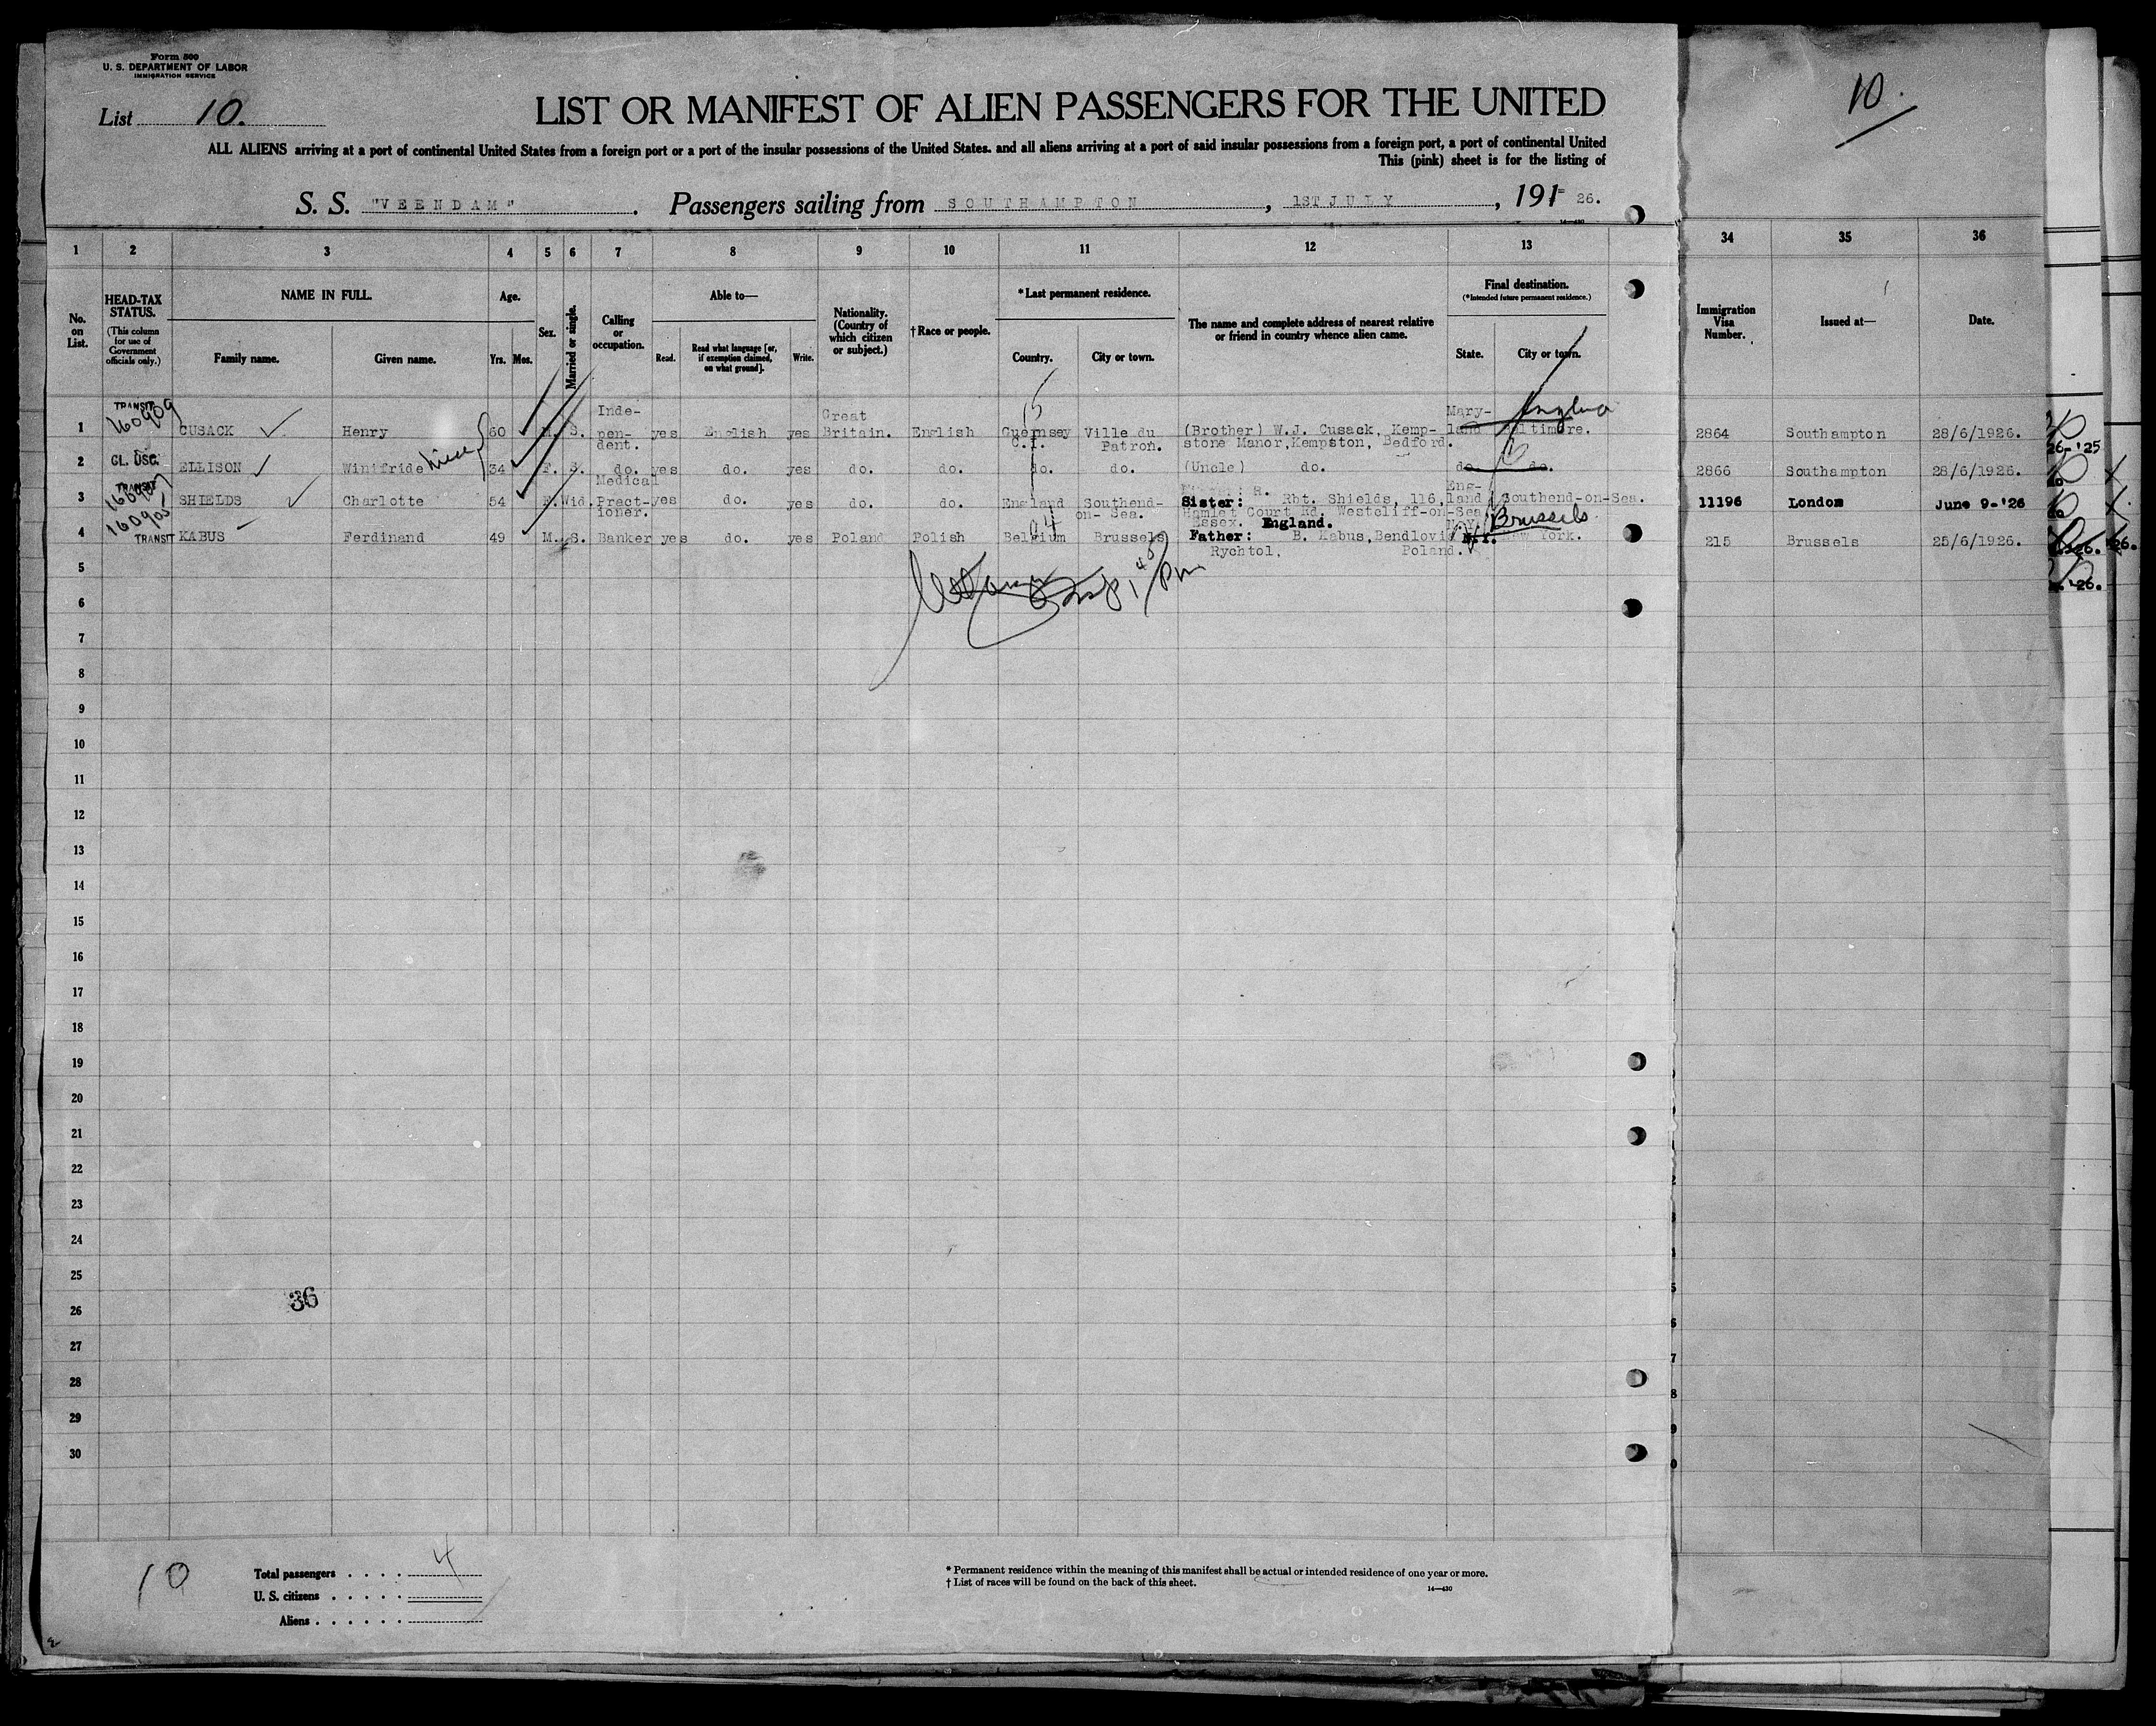 Form 500
U. S. DEPARTMENT OF LABOR
IMMIGRATION SERVICE
List 10.
LIST OR MANIFEST OF ALIEN PASSENGERS FOR THE UNITED
ALL ALIENS arriving at a port of continental United States from a foreign port or a port of the insular possessions of the United States, and all aliens arriving at a port of said insular possessions from a foreign port, a port of continental United
This (pink) sheet is for the listing of
S. S. "VEENDAM". Passengers sailing from SOUTHAMPTON, 1ST JULY, 191 26.
10.
1 2 3 4 5 6 7 8 9 10 11 12 13 34 35 36
No. on List.
HEAD-TAX STATUS.
(This column for use of Government officials only.)
NAME IN FULL.
Family name. Given name.
Age.
Yrs. Mos.
Sex.
Married or single.
Calling or occupation.
Able to—
Read. Read what language [or, if exemption claimed, on what ground]. Write.
Nationality. (Country of which citizen or subject.)
†Race or people.
*Last permanent residence.
Country. City or town.
The name and complete address of nearest relative or friend in country whence alien came.
Final destination.
(*Intended future permanent residence.)
State. City or town.
Immigration Visa Number.
Issued at—
Date.
1 TRANSIT 160909 CUSACK Henry 60 M. S. Inde-pen-dent. yes English yes Great Britain. English Guernsey C.I. Ville du Patron. (Brother) W.J. Cusack, Kemp-stone Manor, Kempston, Bedford. Mary-land Baltimore. 2864 Southampton 28/6/1926.
2 ELLISON Winifride niece 34 F. S. do. yes do. yes do. do. do. do. (Uncle) do. do. do. 2866 Southampton 28/6/1926.
3 TRANSIT SHIELDS Charlotte 54 F. Wid. Medical Pract-ioner. yes do. yes do. do. England Southend-on-Sea. Sister: Rbt. Shields, 116, Hamlet Court Rd. Westcliff-on-Sea Essex. England. Eng-land Southend-on-Sea. 11196 London June 9-'26
4 TRANSIT KABUS Ferdinand 49 M. S. Banker yes do. yes Poland Polish Belgium Brussels Father: B. Kabus, Rychtol, Poland. N.Y. New York. Brussels 215 Brussels 25/6/1926.
5
6
7
8
9
10
11
12
13
14
15
16
17
18
19
20
21
22
23
24
25
36
26
27
28
29
30
10
Total passengers 4
U. S. citizens
Aliens
* Permanent residence within the meaning of this manifest shall be actual or intended residence of one year or more.
† List of races will be found on the back of this sheet.
14—430